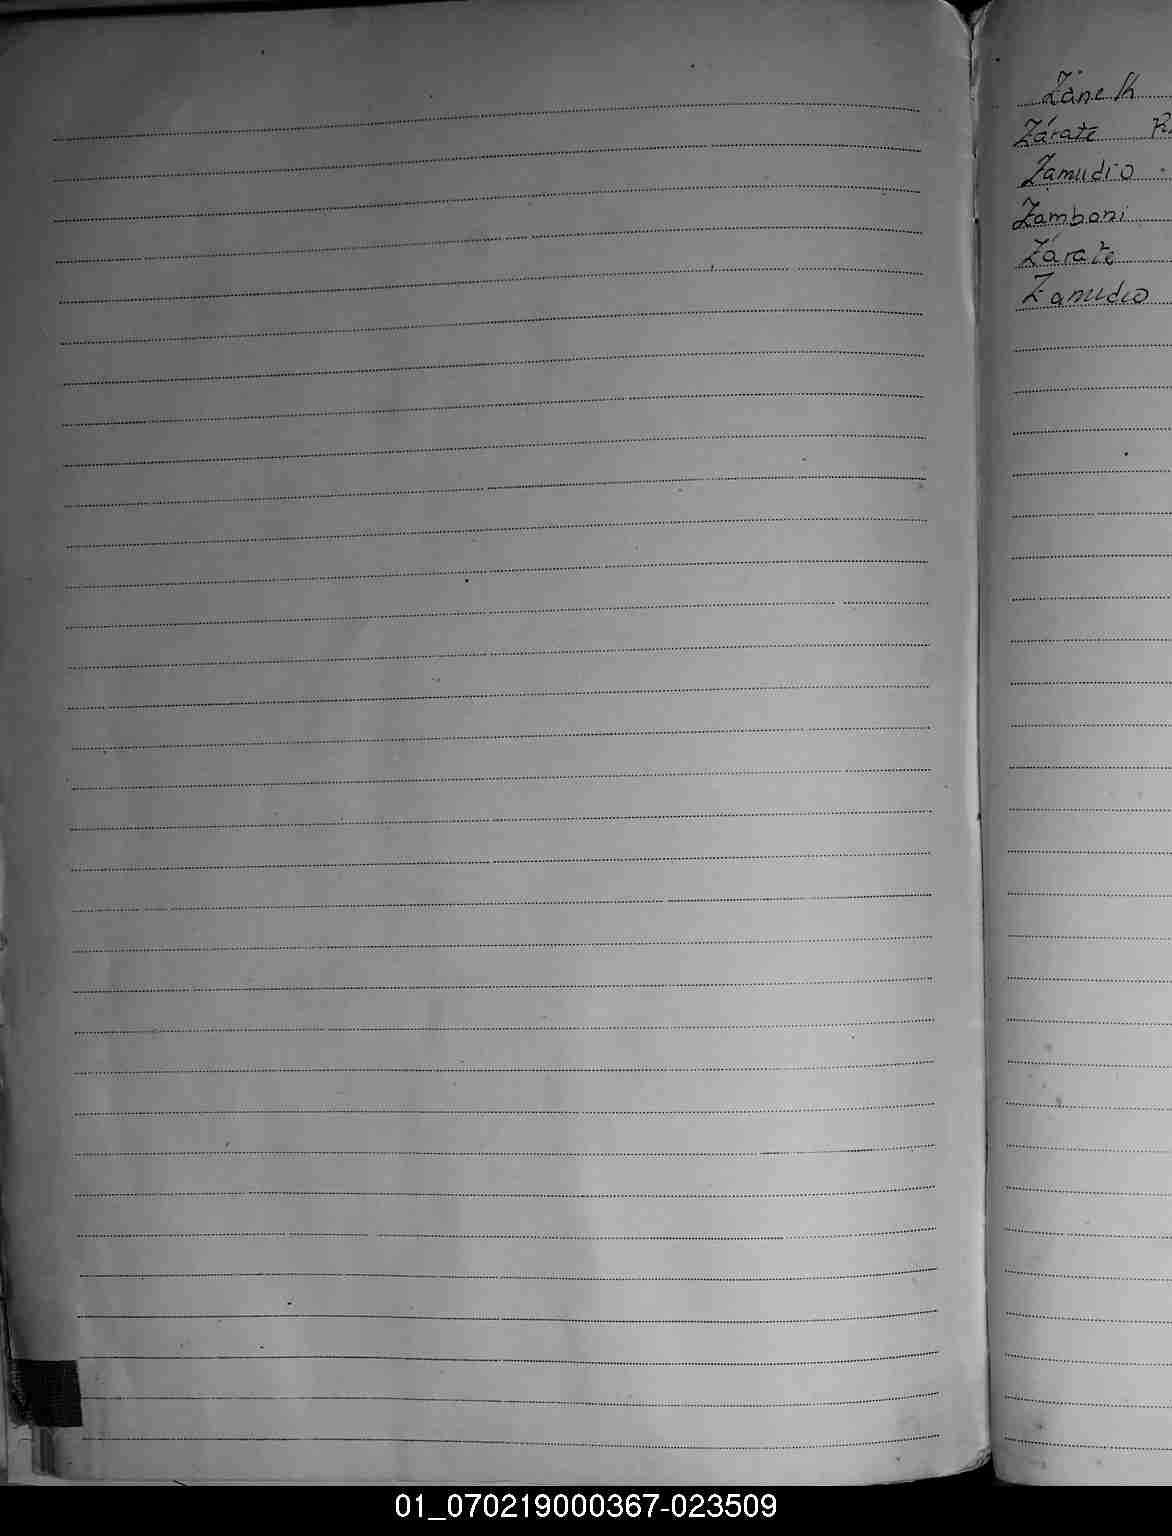 Zárate
Zamudio
Zamboni
Zárate
Zamudio
01_070219000367-023509